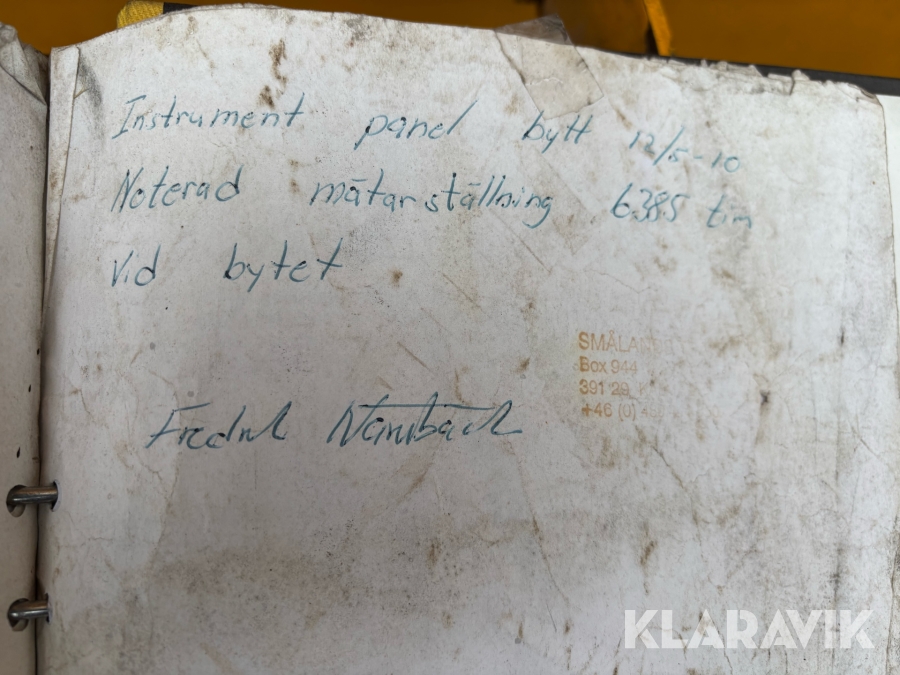 Instrument panel bytt 12/5-10
Noterad mätarställning 6385 tim
Vid bytet
Fredrik
SMÅLAN
Box 944
391 29
+46 (0)
KLARAVIK